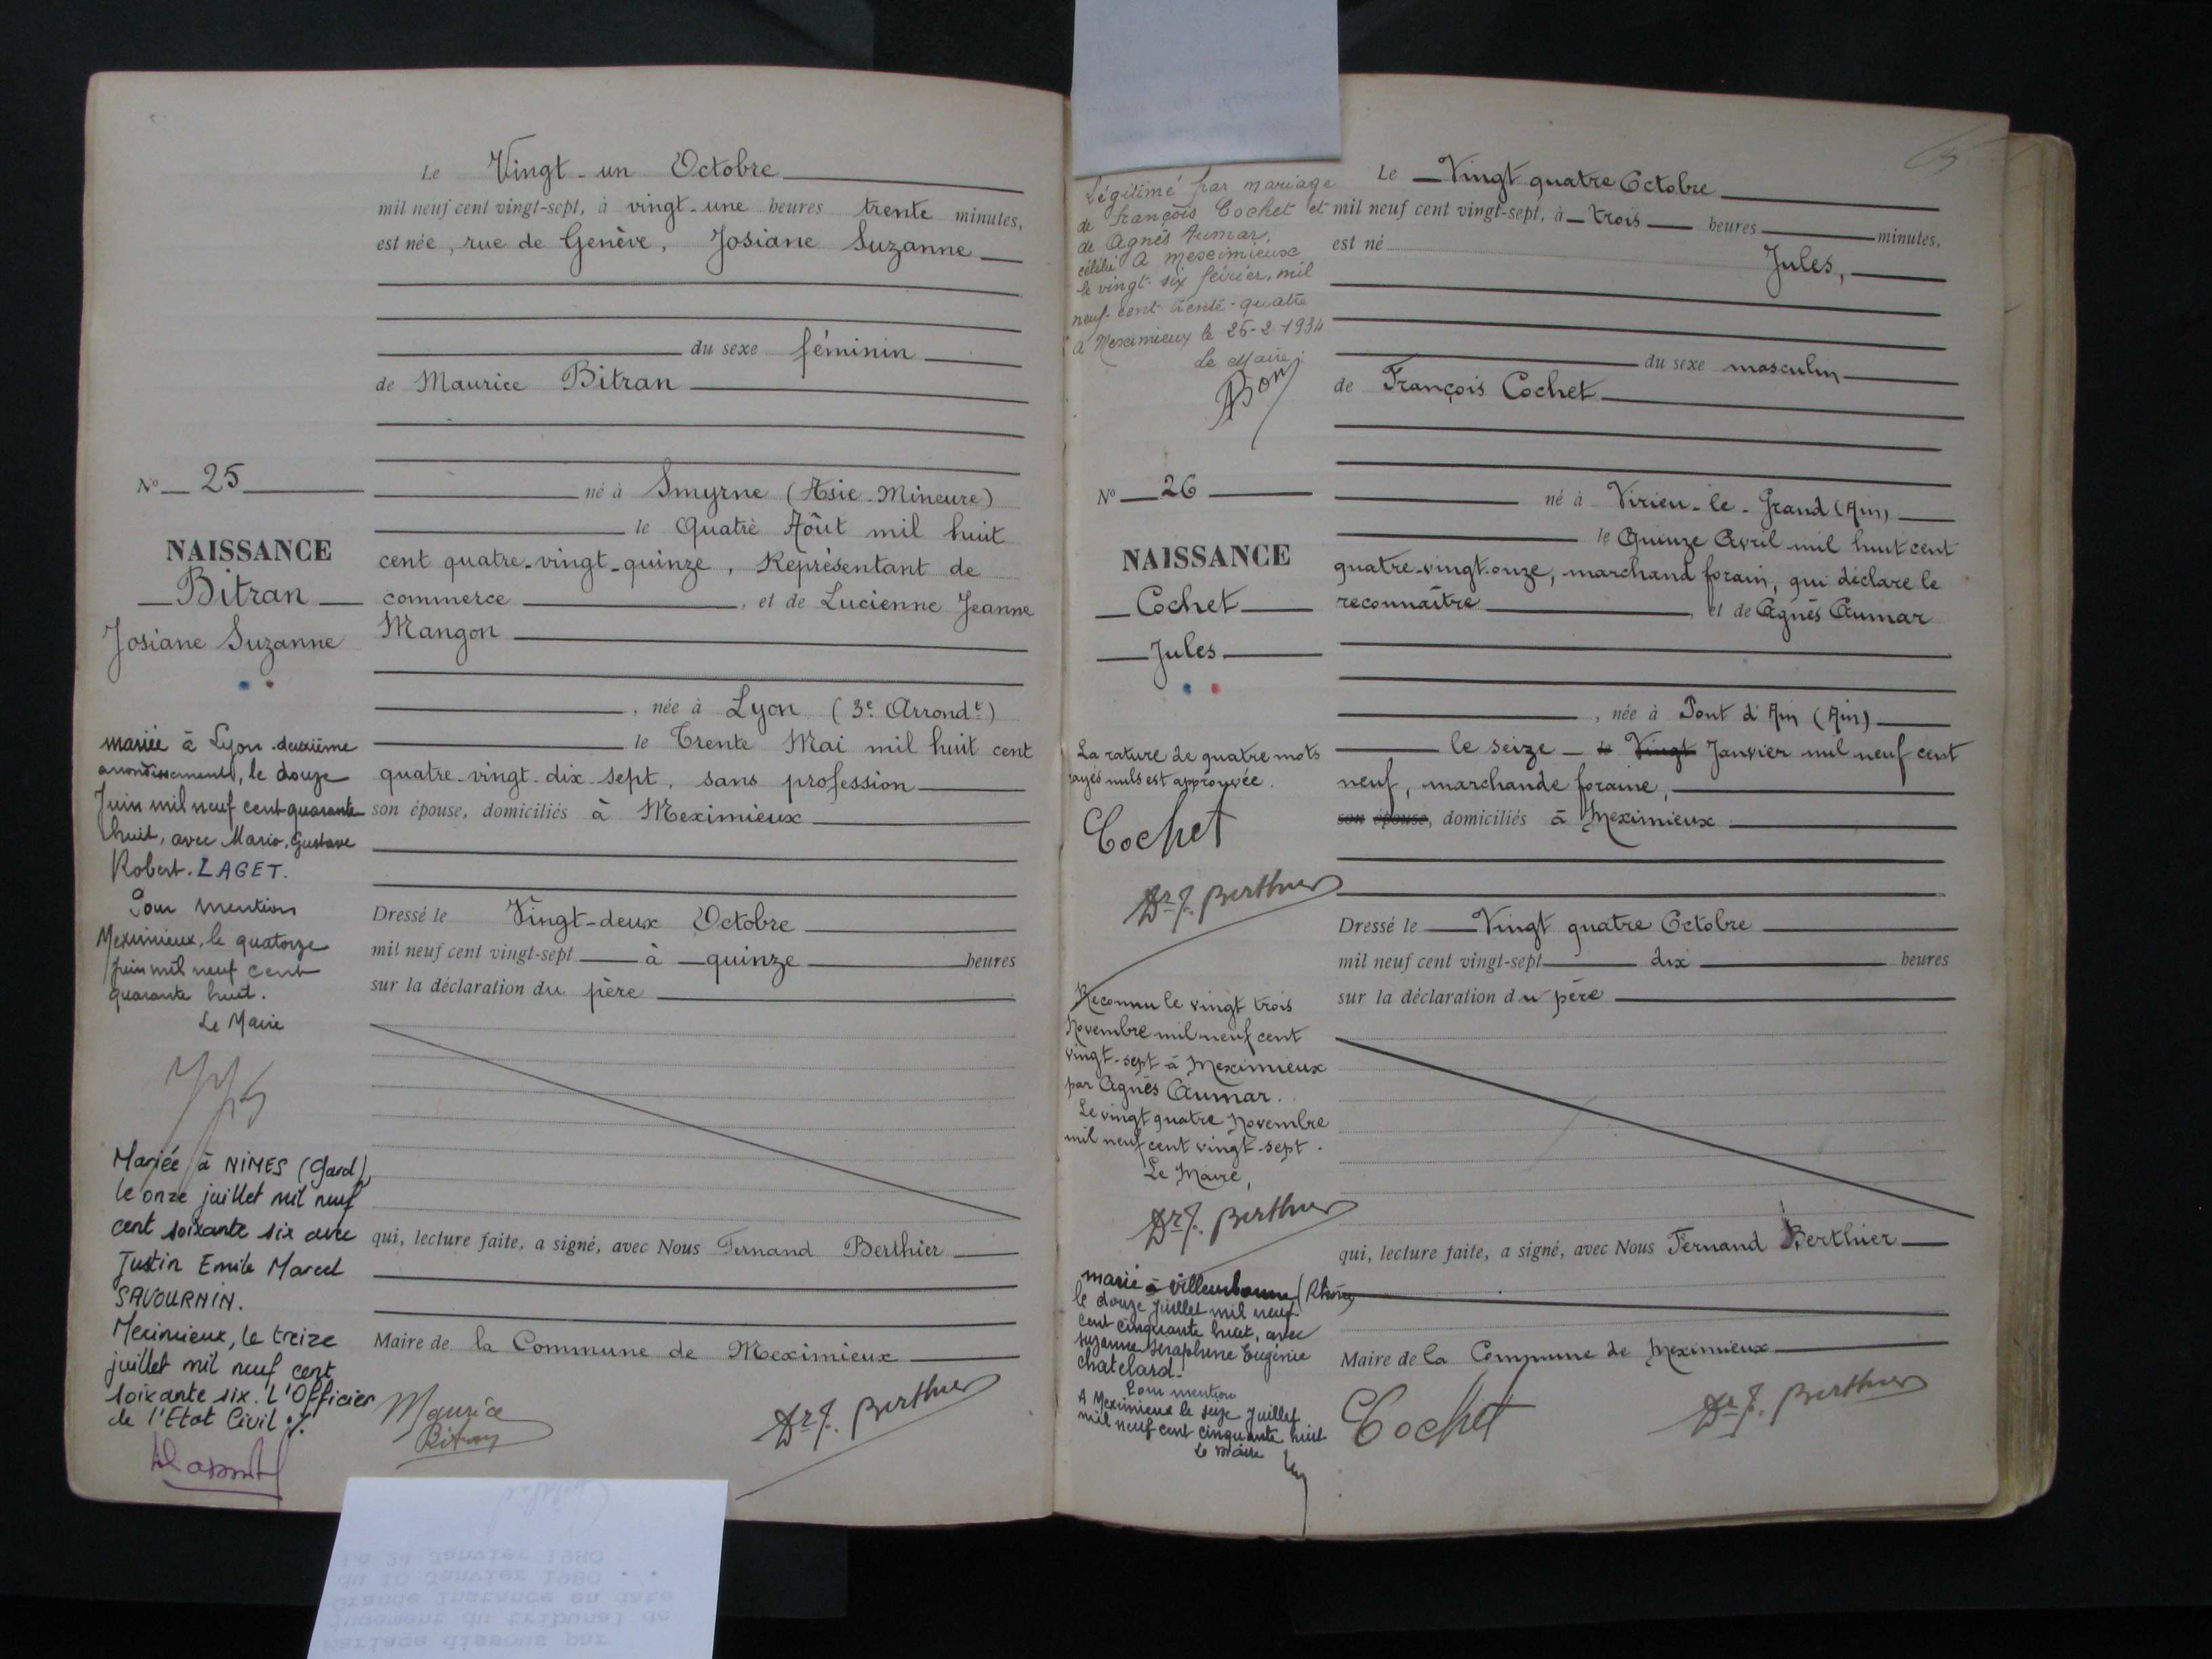 Le Vingt-un Octobre
mil neuf cent vingt-sept, à vingt-une heures trente minutes,
est née, rue de Genève, Josiane Suzanne
du sexe féminin
de Maurice Bitran
né à Smyrne (Asie-Mineure)
le Quatre Août mil huit
cent quatre-vingt-quinze, Représentant de
commerce, et de Lucienne Jeanne
Mangon
, née à Lyon (3e. Arrondt)
le Trente Mai mil huit cent
quatre-vingt-dix sept, sans profession
son épouse, domiciliés à Meximieux
Dressé le Vingt-deux Octobre
mil neuf cent vingt-sept à quinze heures
sur la déclaration du père
qui, lecture faite, a signé, avec Nous Fernand Berthier
Maire de la Commune de Meximieux
Maurice
Bitran
Dr. F. Berthier
No 25
NAISSANCE
Bitran
Josiane Suzanne
mariée à Lyon deuxième
arrondissement, le douze
Juin mil neuf cent quarante
huit, avec Mario, Gustave
Robert. LAGET.
Pour mention
Meximieux, le quatorze
juin mil neuf cent
quarante huit.
Le Maire
Mariée à NIMES (Gard)
le onze juillet mil neuf
cent soixante six avec
Justin Emile Marcel
SAVOURNIN.
Meximieux, le treize
juillet mil neuf cent
soixante six. L'Officier
de l'Etat Civil %.
Le 24 Janvier 1980
du 10 Janvier 1980 . .
Grande Instance en date
jugement du tribunal de
Mariage dissous par
Légitimé par mariage
de François Cochet et
de Agnès Aumar,
célébré à Meximieux
le vingt-six février, mil
neuf-cent-trente-quatre
à Meximieux le 26-2-1934
Le Maire:
Bon
No 26
NAISSANCE
Cochet
Jules
La rature de quatre mots
rayés nuls est approuvée.
Cochet
Dr. F. Berthier
Reconnu le vingt trois
Novembre mil neuf cent
vingt-sept à Meximieux
par Agnès Aumar.
Le vingt quatre Novembre
mil neuf cent vingt-sept.
Le Maire,
Dr. F. Berthier
marié à Villeurbanne (Rhône)
le douze Juillet mil neuf
cent cinquante huit, avec
Suzanne Seraphine Eugénie
Chatelard.
Pour mention
A Meximieux le seize Juillet
mil neuf cent cinquante huit
Le Maire
Le Vingt quatre Octobre
mil neuf cent vingt-sept, à trois heures minutes,
est né
Jules,
du sexe masculin
de François Cochet
né à Virieu-le-Grand (Ain)
le Quinze Avril mil huit cent
quatre-vingt-onze, marchand forain, qui déclare le
reconnaître, et de Agnès Aumar
, née à Pont d'Ain (Ain)
le seize le Vingt Janvier mil neuf cent
neuf, marchande foraine,
son épouse, domiciliés à Meximieux
Dressé le Vingt quatre Octobre
mil neuf cent vingt-sept dix heures
sur la déclaration du père
qui, lecture faite, a signé, avec Nous Fernand Berthier
Maire de la Commune de Meximieux
Cochet
Dr. F. Berthier